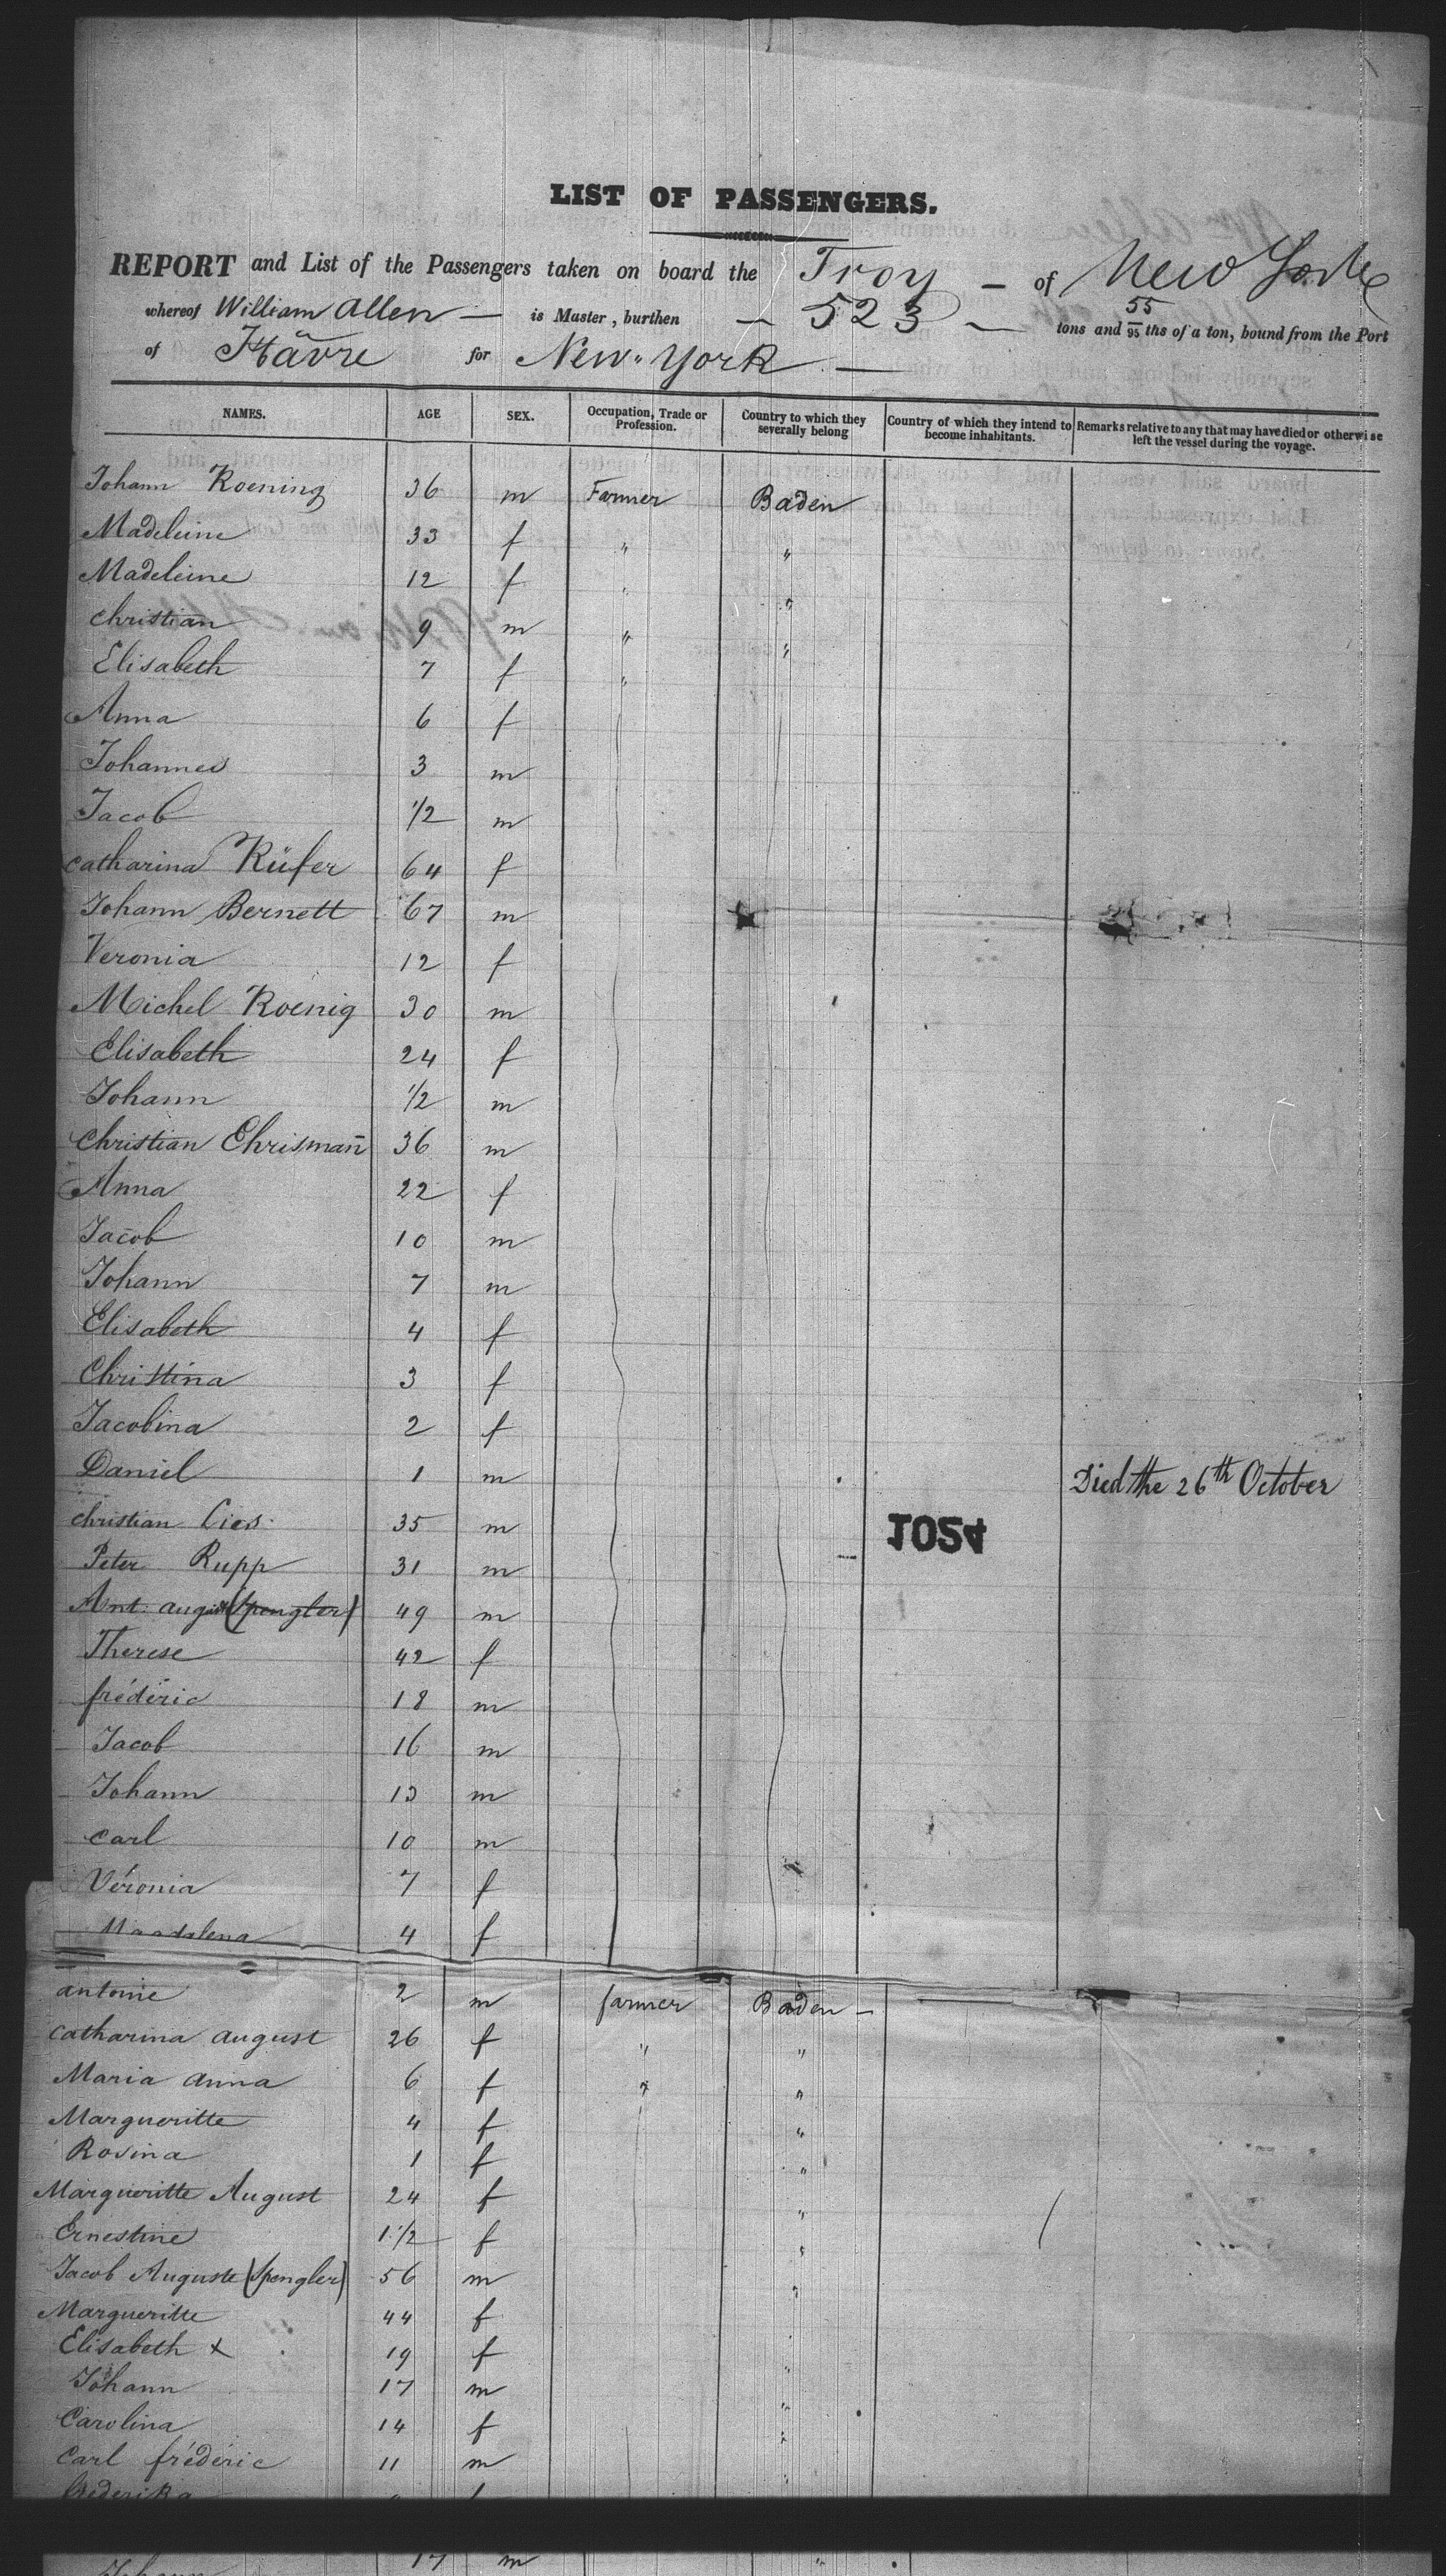 LIST OF PASSENGERS.
REPORT and List of the Passengers taken on board the Troy — of New York
whereof William Allen — is Master, burthen — 523 — 55
tons and 95 ths of a ton, bound from the Port
of Hâvre for New-York —
NAMES. AGE SEX. Occupation, Trade or Profession. Country to which they severally belong Country of which they intend to become inhabitants. Remarks relative to any that may have died or otherwise left the vessel during the voyage.
Johann Roening 36 m Farmer Baden
Madeleine 33 f " "
Madeleine 12 f " "
christian 9 m " "
Elisabeth 7 f "
Anna 6 f
Johannes 3 m
Jacob 1/2 m
catharina Küfer 64 f
Johann Bernett 67 m
Veronia 12 f
Michel Roenig 30 m
Elisabeth 24 f
Johann 1/2 m
Christian Chrisman̄ 36 m
Anna 22 f
Jacob 10 m
Johann 7 m
Elisabeth 4 f
Christina 3 f
Jacobina 2 f
Daniel 1 m Died the 26th October
christian 35 m
Peter Rupp 31 m
Ant: august (Spengler) 49 m
Therese 42 f
frédéric 18 m
Jacob 16 m
Johann 13 m
carl 10 m
Véronia 7 f
Magdalena 4 f
antoine 2 m farmer Baden —
catharina august 26 f " "
Maria anna 6 f " "
Margueritte 4 f "
Rosina 1 f "
Margueritte August 24 f "
Ernestine 1 1/2 f "
Jacob Auguste (Spengler) 56 m "
Margueritte 44 f
Elisabeth x 19 f "
Johann 17 m "
Carolina 14 f "
Carl frédéric 11 m "
Johann 17 m "